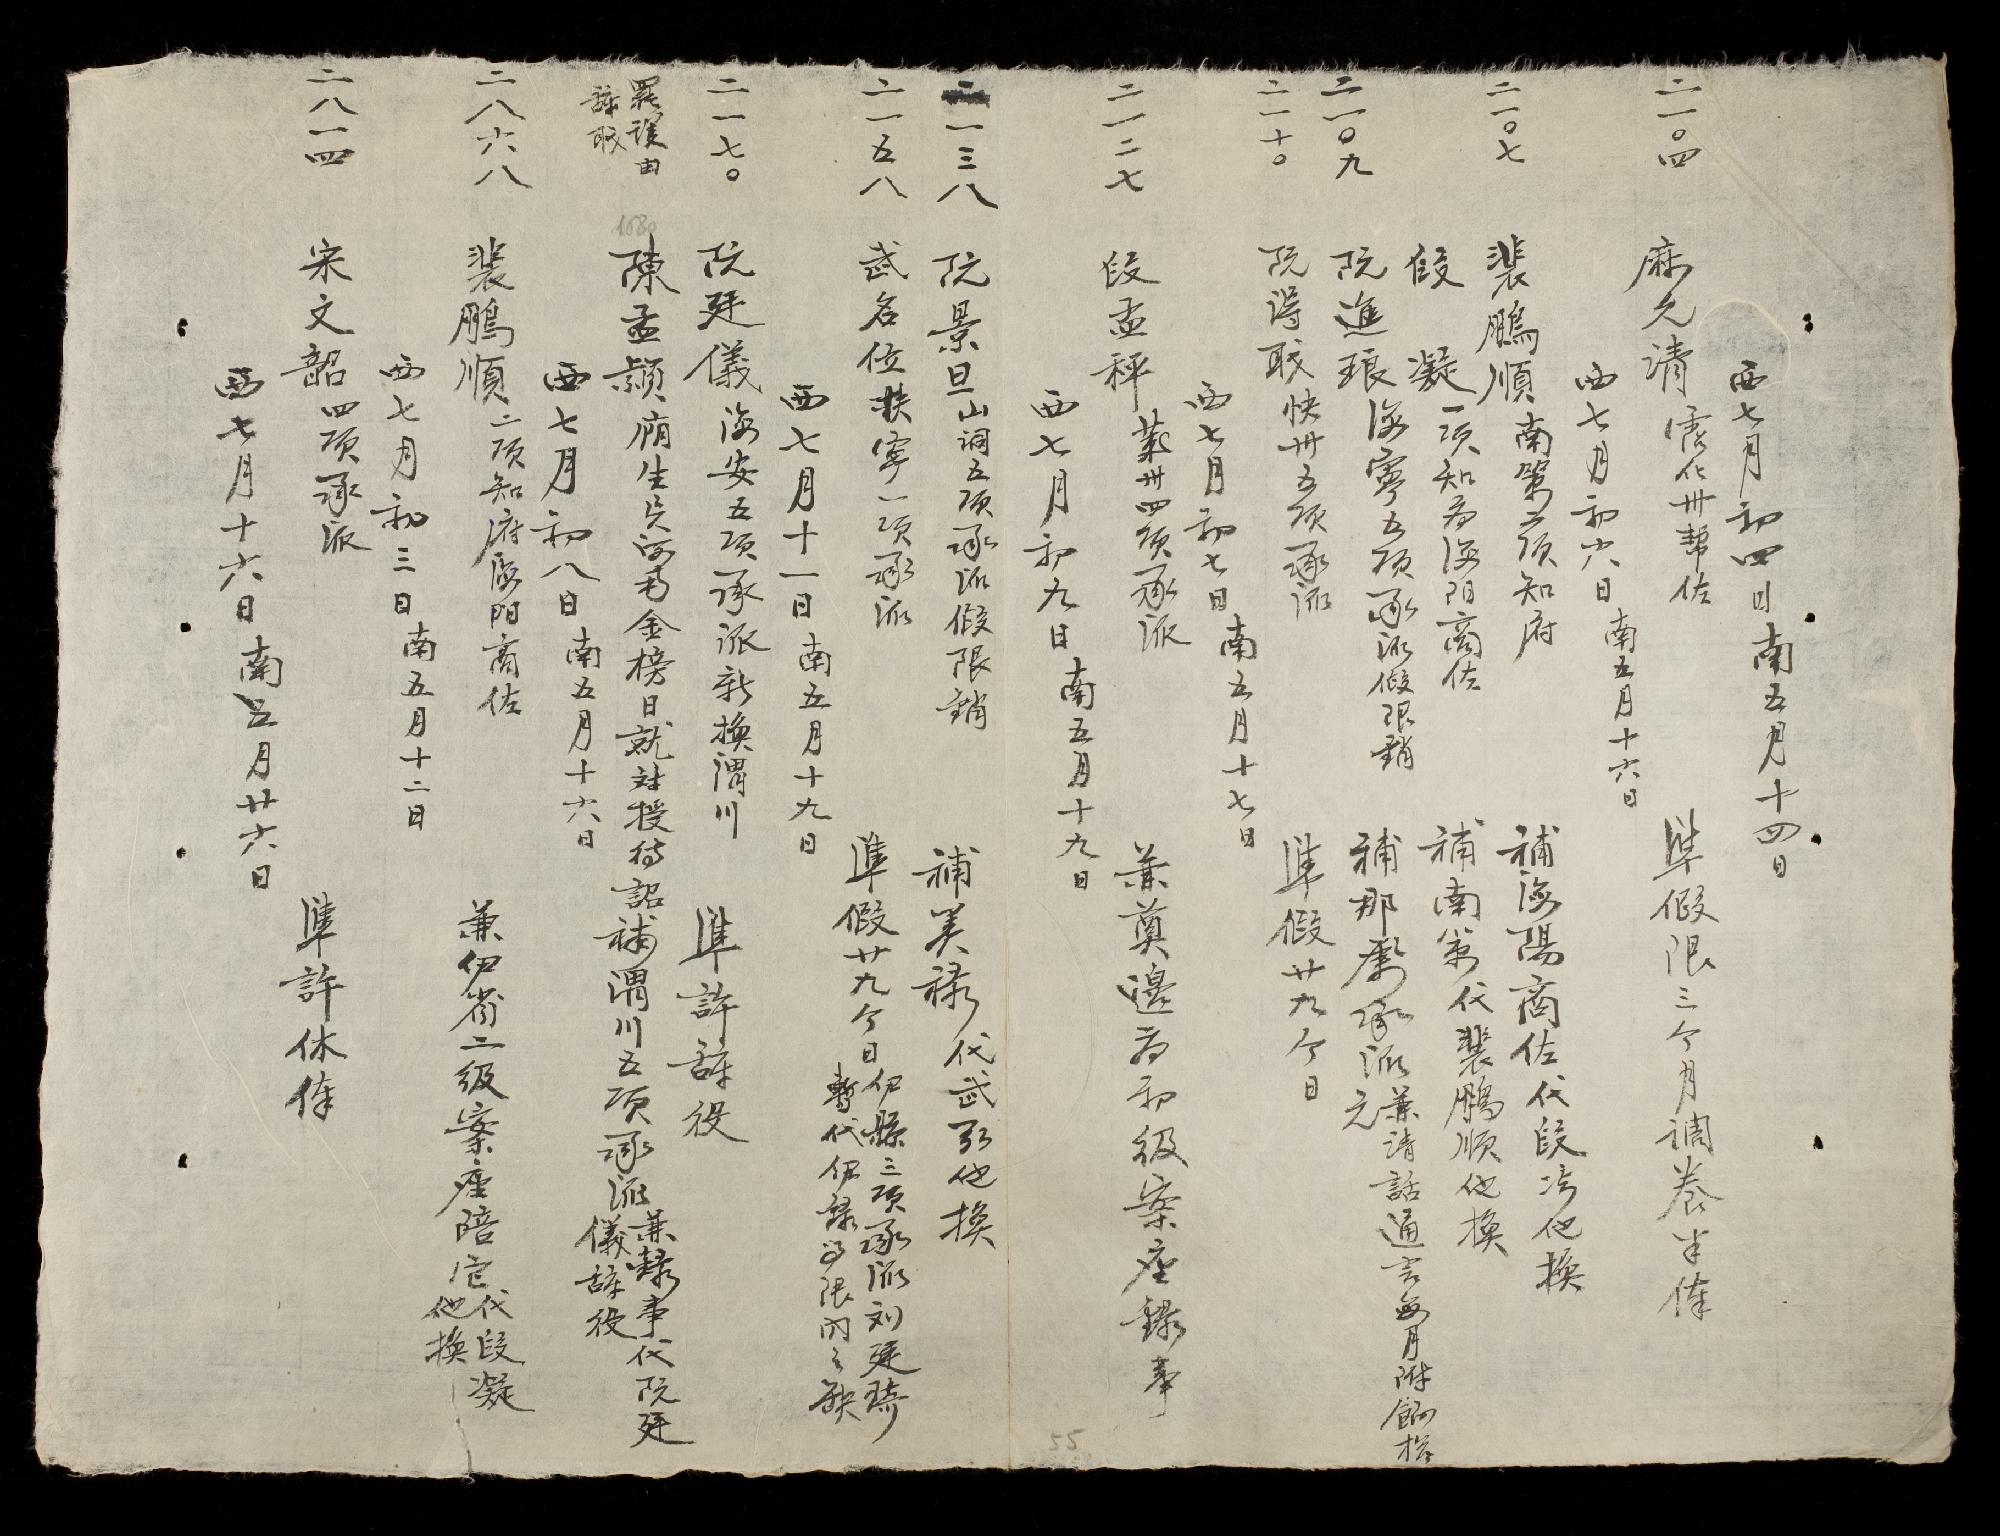 西七月初四日南五月十四日
二一〇四 麻允清 霑化卅幫佐 準假限三个月調养半俸
西七月初六日南五月十六日
二一〇七 裴鵬順 南策二項知府 補海陽商佐代段凝他換
段凝 一項知府海阳商佐 補南策代裴鵬順他換
二一〇九 阮進琅 海寧五項承派假限銷 補那 承派兼請話通言每月附餉 元
二一十〇 阮得職 快卅五項承派 準假廿九个日
西七月初七日南五月十七日
二一二七 段孟秤 卅四項承派 兼奠邊府初級案座錄事
西七月初九日南五月十九日
二一三八 阮景旦 山洞五項承派假限銷 補美祿代武 他換
二一五八 武名位 扶寧一項承派 準假廿九个日伊縣三項承派刘廷琦
暫代伊錄 限內之缺
西七月十一日南五月十九日
二一七〇 阮廷儀 海安五項承派新換渭川 準許辞役
罷 由
辞職
1680
陳孟 廂生 金榜日就 授待詔補渭川五項承派兼錄事代阮廷
儀辞役
西七月初八日南五月十六日
二八六八 裴鵬順 二項知府海阳商佐 兼伊省二級案座陪 代段凝
他換
西七月初三日南五月十二日
二八一四 宋文韶 四項承派 準許休俸
西七月十六日南五月廿六日
55